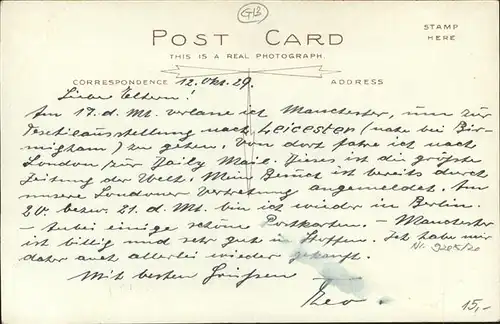 GB
POST CARD
STAMP
HERE
THIS IS A REAL PHOTOGRAPH.
CORRESPONDENCE
ADDRESS
12. Okt. 29.
Liebe Eltern!
Am 17. d. Mt. verlasse ich Manchester, um zur
Textilausstellung nach Leicester (nahe bei Bir-
migham) zu gehen. Von dort fahre ich nach
London zur Daily Mail. Dieses ist die größte
Zeitung der Welt. Mein Besuch ist bereits durch
unsere Londoner Vertretung angemeldet. Am
20. bezw. 21. d. Mt. bin ich wieder in Berlin.
- Anbei einige schöne Postkarten. - Manchester
ist billig und sehr gut in Stoffen. Ich habe mir
daher auch allerlei wieder gekauft.
Mit besten Grüssen
15,-